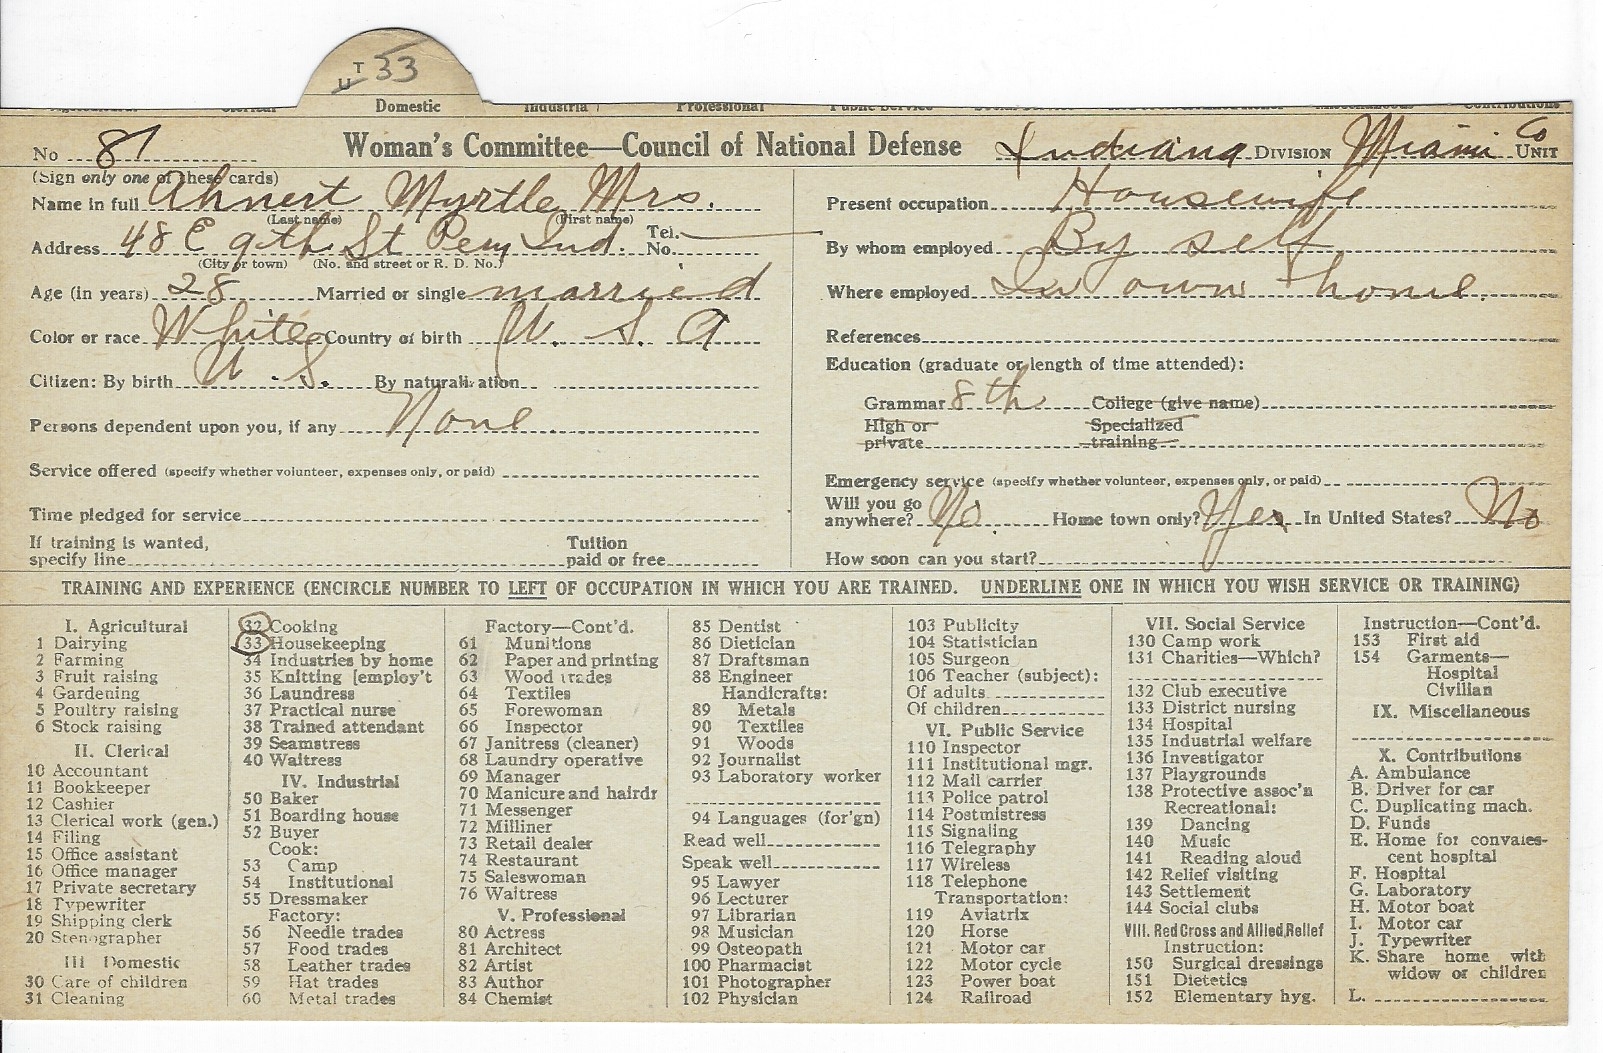 T
U 33
Domestic Industrial Professional Public Service
No 81 Woman's Committee—Council of National Defense Indiana DIVISION Miami Co UNIT
(Sign only one of these cards)
Name in full Ahnert Myrtle Mrs.
(Last name) (First name)
Address 48 E 9th St Peru Ind. Tel. No.
(City or town) (No. and street or R. D. No.)
Age (in years) 28 Married or single married
Color or race White Country of birth U. S. A
Citizen: By birth U. S. By naturalization
Persons dependent upon you, if any None
Service offered (specify whether volunteer, expenses only, or paid)
Time pledged for service
If training is wanted, specify line Tuition paid or free
Present occupation Housewife
By whom employed By self
Where employed In own home
References
Education (graduate or length of time attended):
Grammar 8th College (give name)
High or private Specialized training
Emergency service (specify whether volunteer, expenses only, or paid)
Will you go anywhere? No Home town only? Yes In United States? No
How soon can you start?
TRAINING AND EXPERIENCE (ENCIRCLE NUMBER TO LEFT OF OCCUPATION IN WHICH YOU ARE TRAINED. UNDERLINE ONE IN WHICH YOU WISH SERVICE OR TRAINING)
I. Agricultural
1 Dairying
2 Farming
3 Fruit raising
4 Gardening
5 Poultry raising
6 Stock raising
II. Clerical
10 Accountant
11 Bookkeeper
12 Cashier
13 Clerical work (gen.)
14 Filing
15 Office assistant
16 Office manager
17 Private secretary
18 Typewriter
19 Shipping clerk
20 Stenographer
III Domestic
30 Care of children
31 Cleaning
32 Cooking
33 Housekeeping
34 Industries by home
35 Knitting [employ't
36 Laundress
37 Practical nurse
38 Trained attendant
39 Seamstress
40 Waitress
IV. Industrial
50 Baker
51 Boarding house
52 Buyer
Cook:
53 Camp
54 Institutional
55 Dressmaker
Factory:
56 Needle trades
57 Food trades
58 Leather trades
59 Hat trades
60 Metal trades
Factory—Cont'd.
61 Munitions
62 Paper and printing
63 Wood trades
64 Textiles
65 Forewoman
66 Inspector
67 Janitress (cleaner)
68 Laundry operative
69 Manager
70 Manicure and hairdr
71 Messenger
72 Milliner
73 Retail dealer
74 Restaurant
75 Saleswoman
76 Waitress
V. Professional
80 Actress
81 Architect
82 Artist
83 Author
84 Chemist
85 Dentist
86 Dietician
87 Draftsman
88 Engineer
Handicrafts:
89 Metals
90 Textiles
91 Woods
92 Journalist
93 Laboratory worker
94 Languages (for'gn)
Read well
Speak well
95 Lawyer
96 Lecturer
97 Librarian
98 Musician
99 Osteopath
100 Pharmacist
101 Photographer
102 Physician
103 Publicity
104 Statistician
105 Surgeon
106 Teacher (subject):
Of adults
Of children
VI. Public Service
110 Inspector
111 Institutional mgr.
112 Mail carrier
113 Police patrol
114 Postmistress
115 Signaling
116 Telegraphy
117 Wireless
118 Telephone
Transportation:
119 Aviatrix
120 Horse
121 Motor car
122 Motor cycle
123 Power boat
124 Railroad
VII. Social Service
130 Camp work
131 Charities—Which?
132 Club executive
133 District nursing
134 Hospital
135 Industrial welfare
136 Investigator
137 Playgrounds
138 Protective assoc'n
Recreational:
139 Dancing
140 Music
141 Reading aloud
142 Relief visiting
143 Settlement
144 Social clubs
VIII. Red Cross and Allied Relief
Instruction:
150 Surgical dressings
151 Dietetics
152 Elementary hyg.
Instruction—Cont'd.
153 First aid
154 Garments—
Hospital
Civilian
IX. Miscellaneous
X. Contributions
A. Ambulance
B. Driver for car
C. Duplicating mach.
D. Funds
E. Home for convales-
cent hospital
F. Hospital
G. Laboratory
H. Motor boat
I. Motor car
J. Typewriter
K. Share home with
widow or children
L.